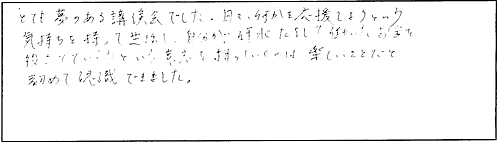 とても夢のある講演会でした。日々何かを応援しようという
気持ちを持って生活し、自分が
役立てていこうという意志を持っていくのは楽しいことだと
初めて認識できました。